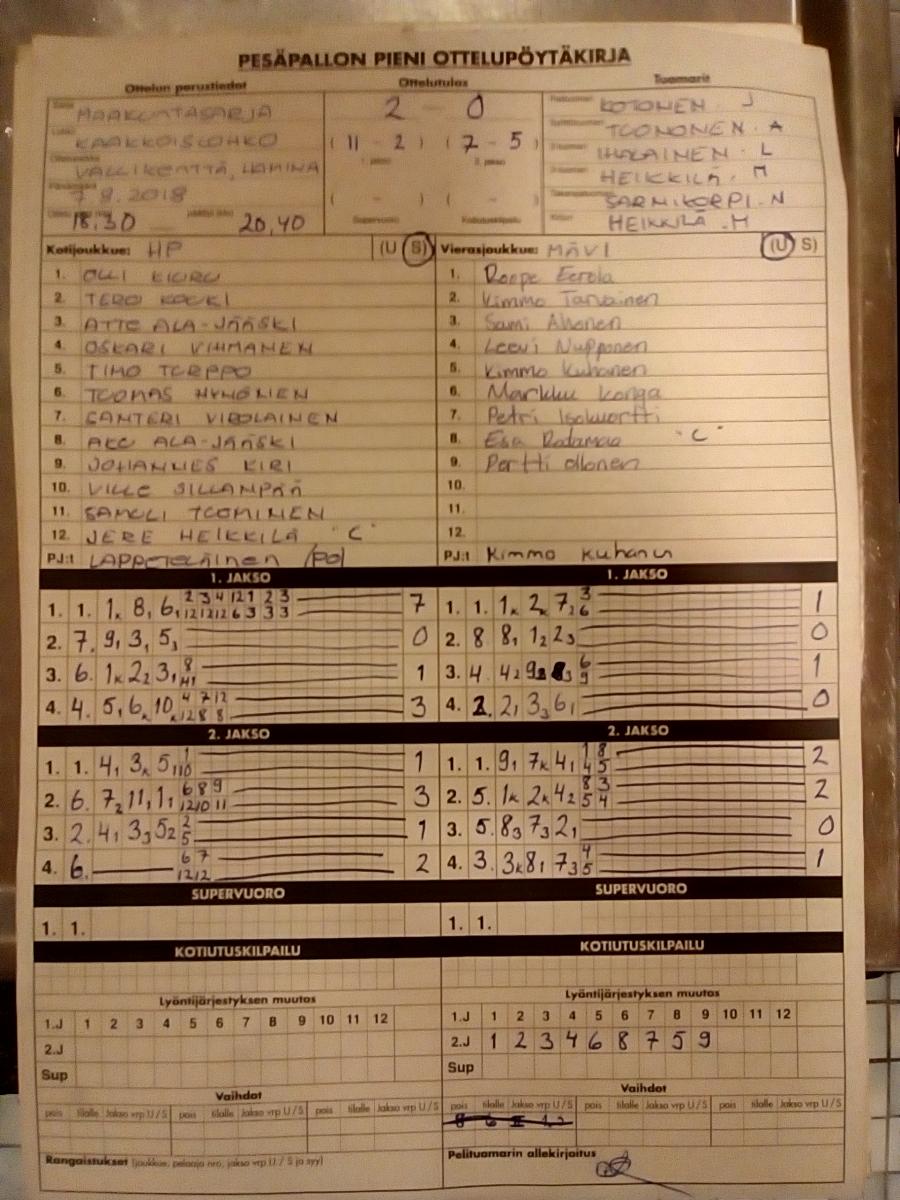 PESÄPALLON PIENI OTTELUPÖYTÄKIRJA
Ottelun perustiedot Ottelutulos Tuomarit
MAAKUNTASARJA 2 - 0 KOTONEN J
KAAKKOISLOHKO ( 11 - 2 ) ( 7 - 5 ) TUONONEN . A
VALLIKENTTÄ, HAMINA IHALAINEN . L
7.8.2018 ( - ) ( - ) HEIKKILÄ . M
18.30 20.40 Supervuoro Kotiutuskilpailu SARNIKORPI . N
HEIKKILÄ . M
Kotijoukkue: HP (U S) Vierasjoukkue: MÄVI (U S)
1. OLLI KIURU 1. Roope Eerola
2. TERO KOUKI 2. Kimmo Tarvainen
3. ATTE ALA-JÄÄSKI 3. Sami Ahonen
4. OSKARI VIHMANEN 4. Leevi Nupponen
5. TIMO TURPPO 5. Kimmo Kuhanen
6. TUOMAS HYNÖNEN 6. Markku Konga
7. SANTERI VIROLAINEN 7. Petri Isoluortti
8. AKU ALA-JÄÄSKI 8. Esa Ratamaa "C"
9. JOHANNES KIRI 9. Pertti Ollonen
10. VILLE SILLANPÄÄ 10.
11. SAMULI TUOMINEN 11.
12. JERE HEIKKILÄ "C" 12.
PJ:t LAPPETELÄINEN /PJ:t Kimmo Kuhanen
1. JAKSO 1. JAKSO
1. 1. 1x 8, 6, 2 3 4 12 1 2 3 7 1. 1. 1x 2x 7,2 3 1
12 12 12 6 3 3 3 6
2. 7. 9, 3, 5, 0 2. 8 8, 1 2 2 3 0
3. 6. 1x 2 2 3, 8 1 3. 4. 4 2 9 2 3 6 1
11 9
4. 4. 5, 6x 10x 4 7 12 3 4. 2. 2, 3 3 6, 0
12 8 8
2. JAKSO 2. JAKSO
1. 1. 4, 3x 5, 1 1 1. 1. 9, 7x 4, 1 8 2
10 4 5
2. 6. 7 2 11, 1, 6 8 9 3 2. 5. 1x 2x 4 2 8 3 2
12 10 11 5 4
3. 2. 4, 3 3 5 2 2 1 3. 5. 8 3 7 3 2, 0
5
4. 6. 6 7 2 4. 3. 3x 8, 7 3 4 1
12 12 5
SUPERVUORO SUPERVUORO
1. 1. 1. 1.
KOTIUTUSKILPAILU KOTIUTUSKILPAILU
Lyöntijärjestyksen muutos Lyöntijärjestyksen muutos
1.J 1 2 3 4 5 6 7 8 9 10 11 12 1.J 1 2 3 4 5 6 7 8 9 10 11 12
2.J 2.J 1 2 3 4 6 8 7 5 9
Sup Sup
Vaihdot Vaihdot
pois tilalle Jakso vrp U/S pois tilalle Jakso vrp U/S pois tilalle Jakso vrp U/S pois tilalle Jakso vrp U/S pois tilalle Jakso vrp U/S pois tilalle Jakso vrp U/S
Rangaistukset (joukkue, pelaaja nro, jakso vrp U / S ja syy) Pelituomarin allekirjoitus